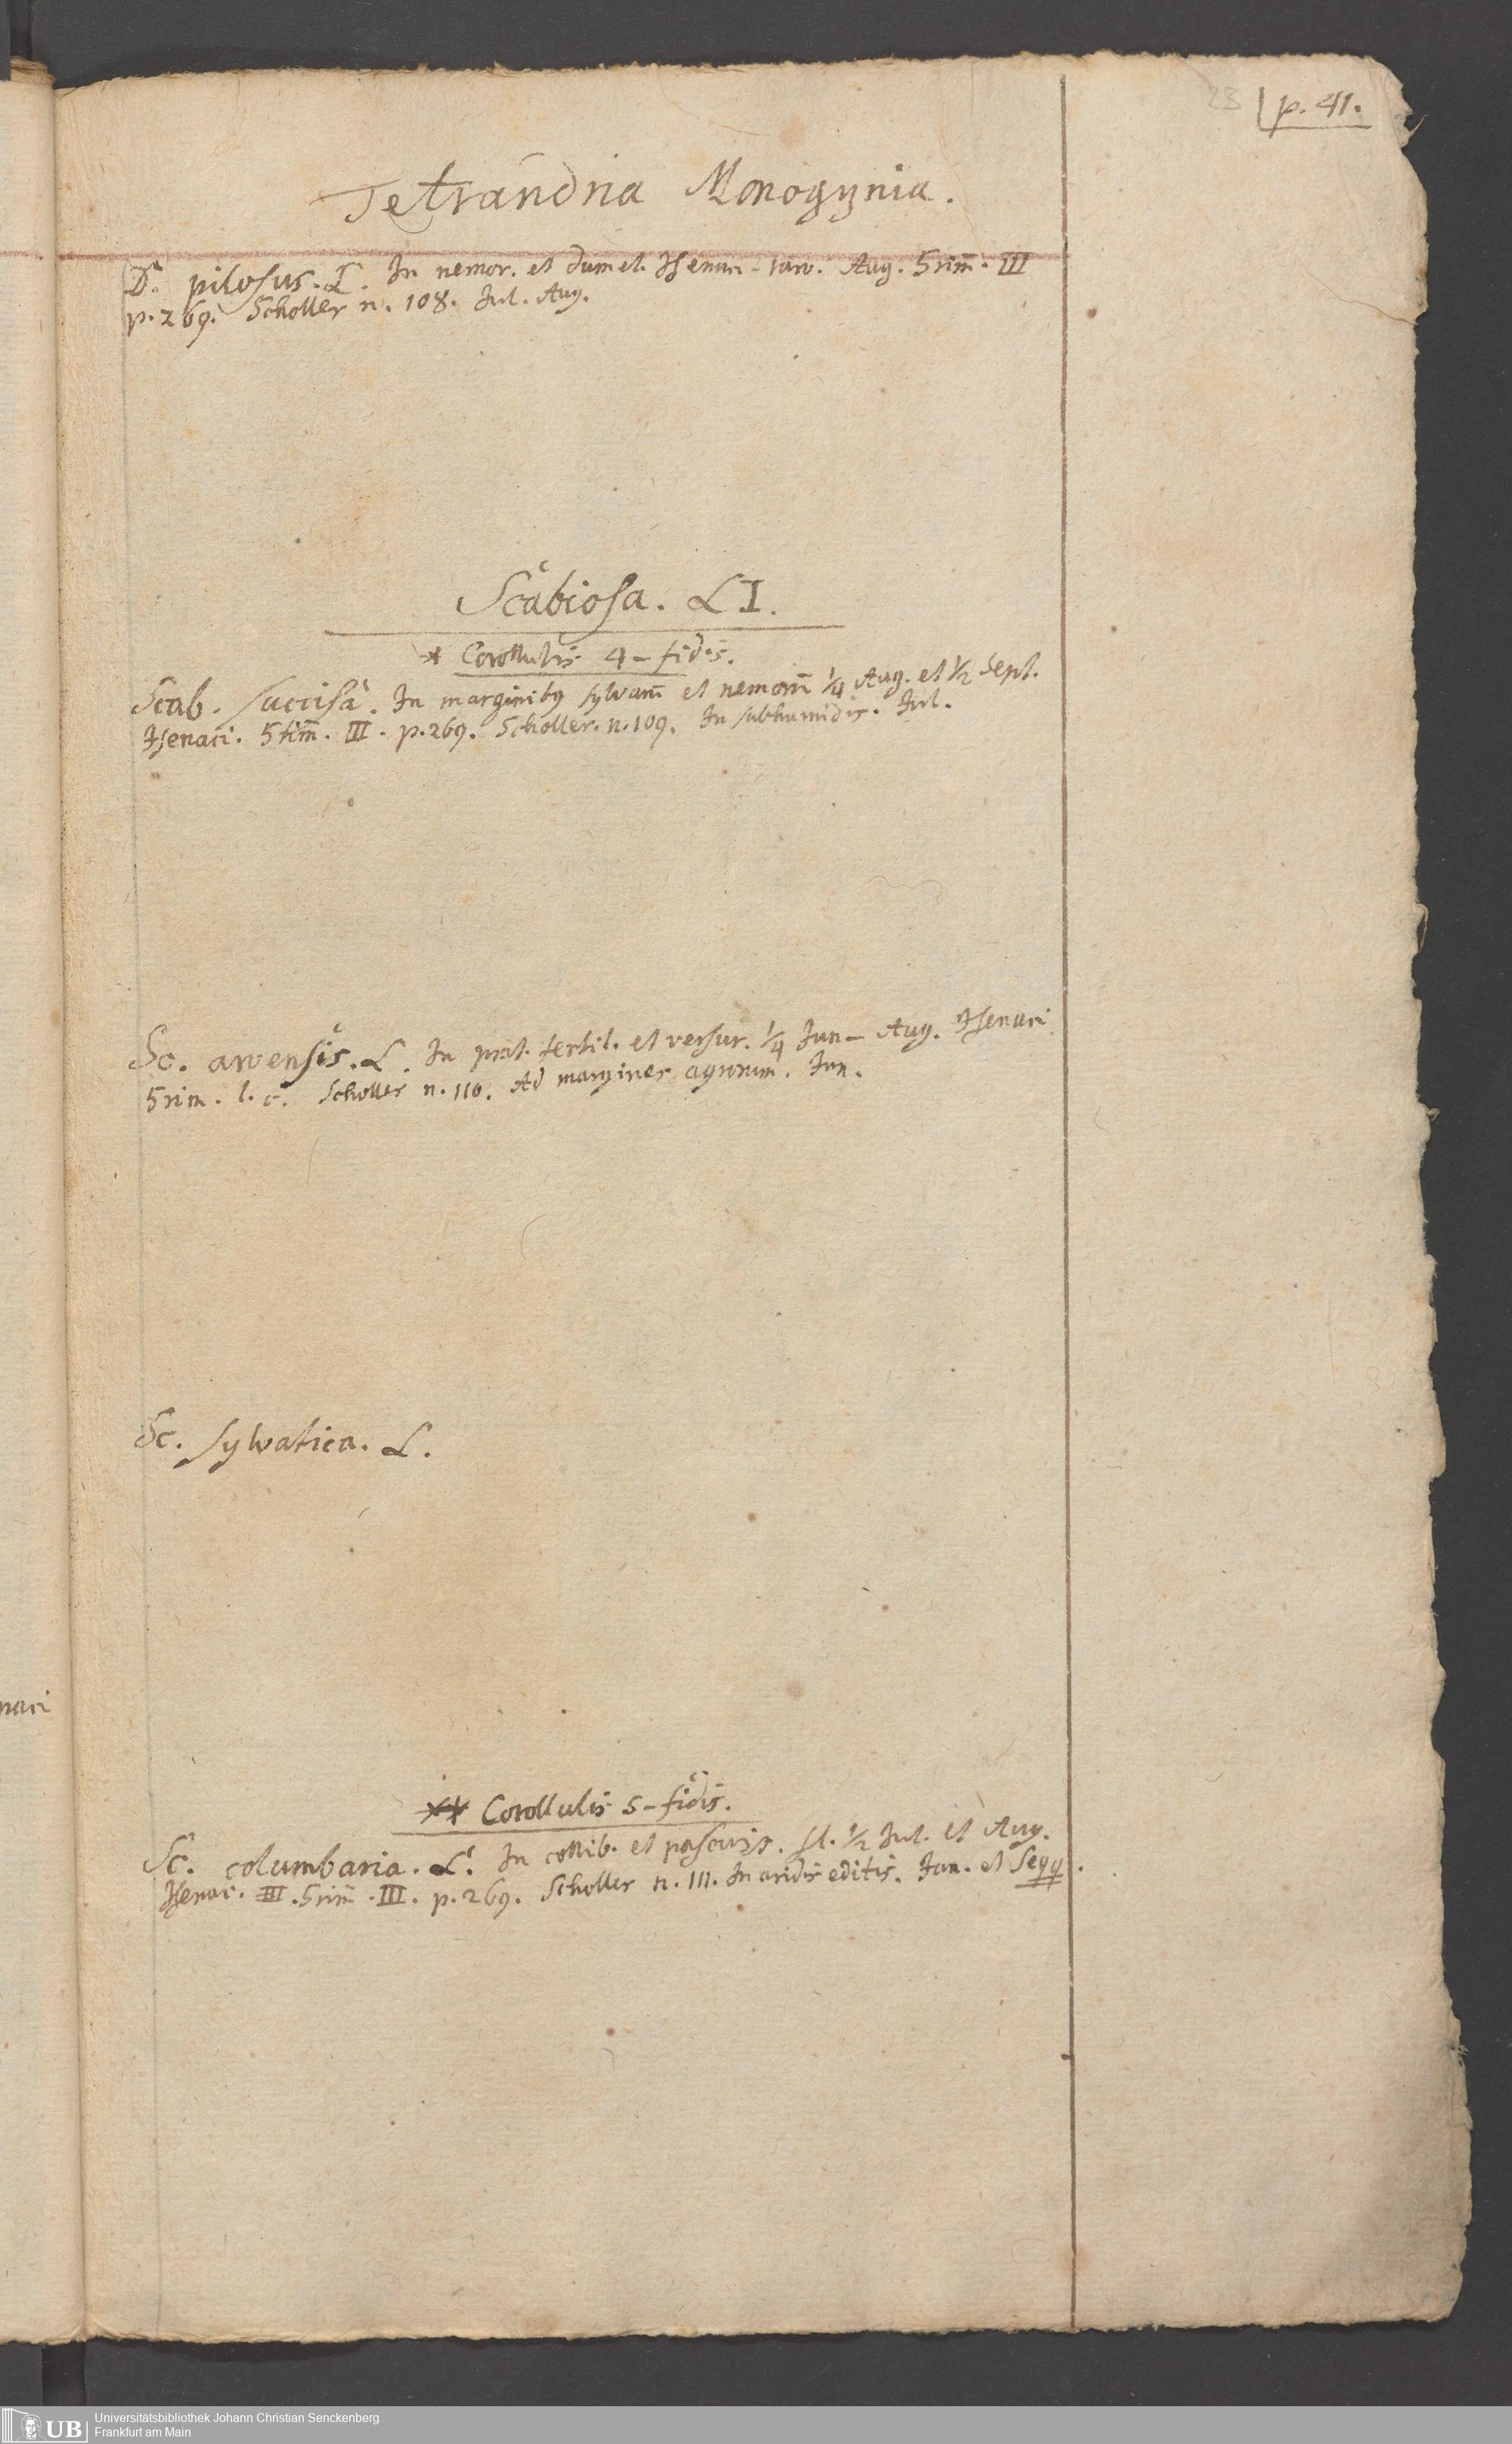 23 p. 41.
Tetrandria Monogynia.
D. pilosus. L. In nemor. et dumet. Isenaci - rar. Aug. Grim̄. III
p. 269. Scholler n. 108. Jul. Aug.
Scabiosa. LI.
* Corollulis 4-fidis.
Scab. succisa. In marginibq sylvarū et nemorū 1/4 Aug. et 1/2 Sept.
Isenaci. Grim̄. III. p. 269. Scholler. n. 109. In subhumidis. Jul.
Sc. arvensis. L. In prat. fertil. et versur. 1/4 Jun - Aug. Isenaci
Grim. l. c. Scholler n. 110. Ad margines agrorum. Jun.
Sc. sylvatica. L.
naci
** Corollulis 5-fidis.
Sc. columbaria. L. In collib. et pascuis. fl. 1/2 Jul. et Aug.
Isenac. III. Grim̄. III. p. 269. Scholler n. 111. In aridis editis. Jun. et seqq.
UB Universitätsbibliothek Johann Christian Senckenberg
Frankfurt am Main